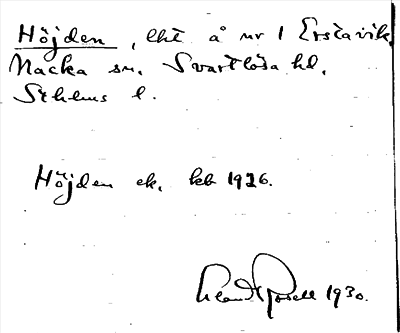 Höjden, lht å nr 1 Erstavik,
Nacka sn. Svartlösa hd.
Sthlms l.
Höjden ek. kb 1926.
1930.